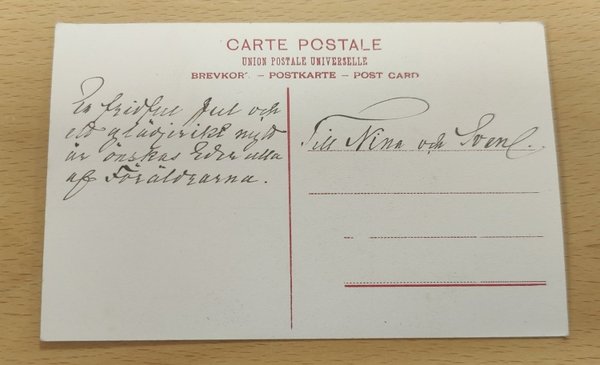 CARTE POSTALE
UNION POSTALE UNIVERSELLE
BREVKOR' — POSTKARTE — POST CARD
En fridfull Jul och
ett glädjerikt nytt
år önskas Eder alla
af Föräldrarna.
Till Nina och Sven.